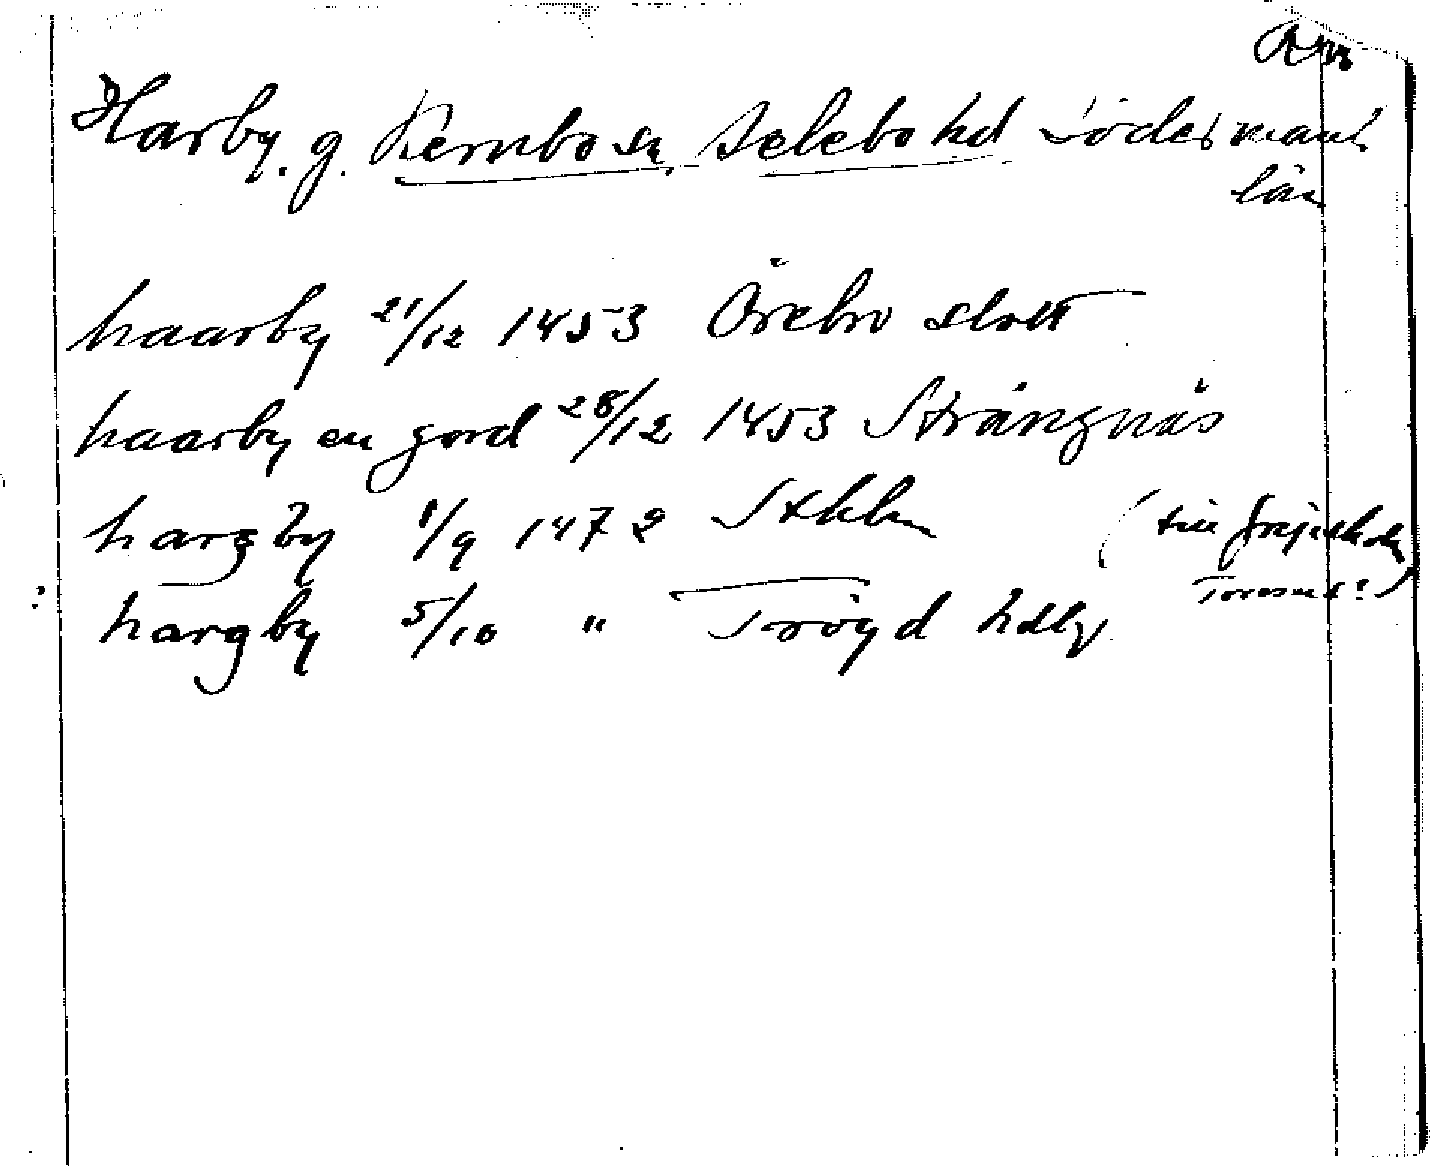 Harby. g. Kernbo sn, Selebo hd Södermanl.
län
haarby 21/12 1453 Örebro slott
haarby en gord 28/12 1453 Strängnäs
hargby 1/9 1472 Sthlm (till
hargby 5/10 " Tröyd hdlg